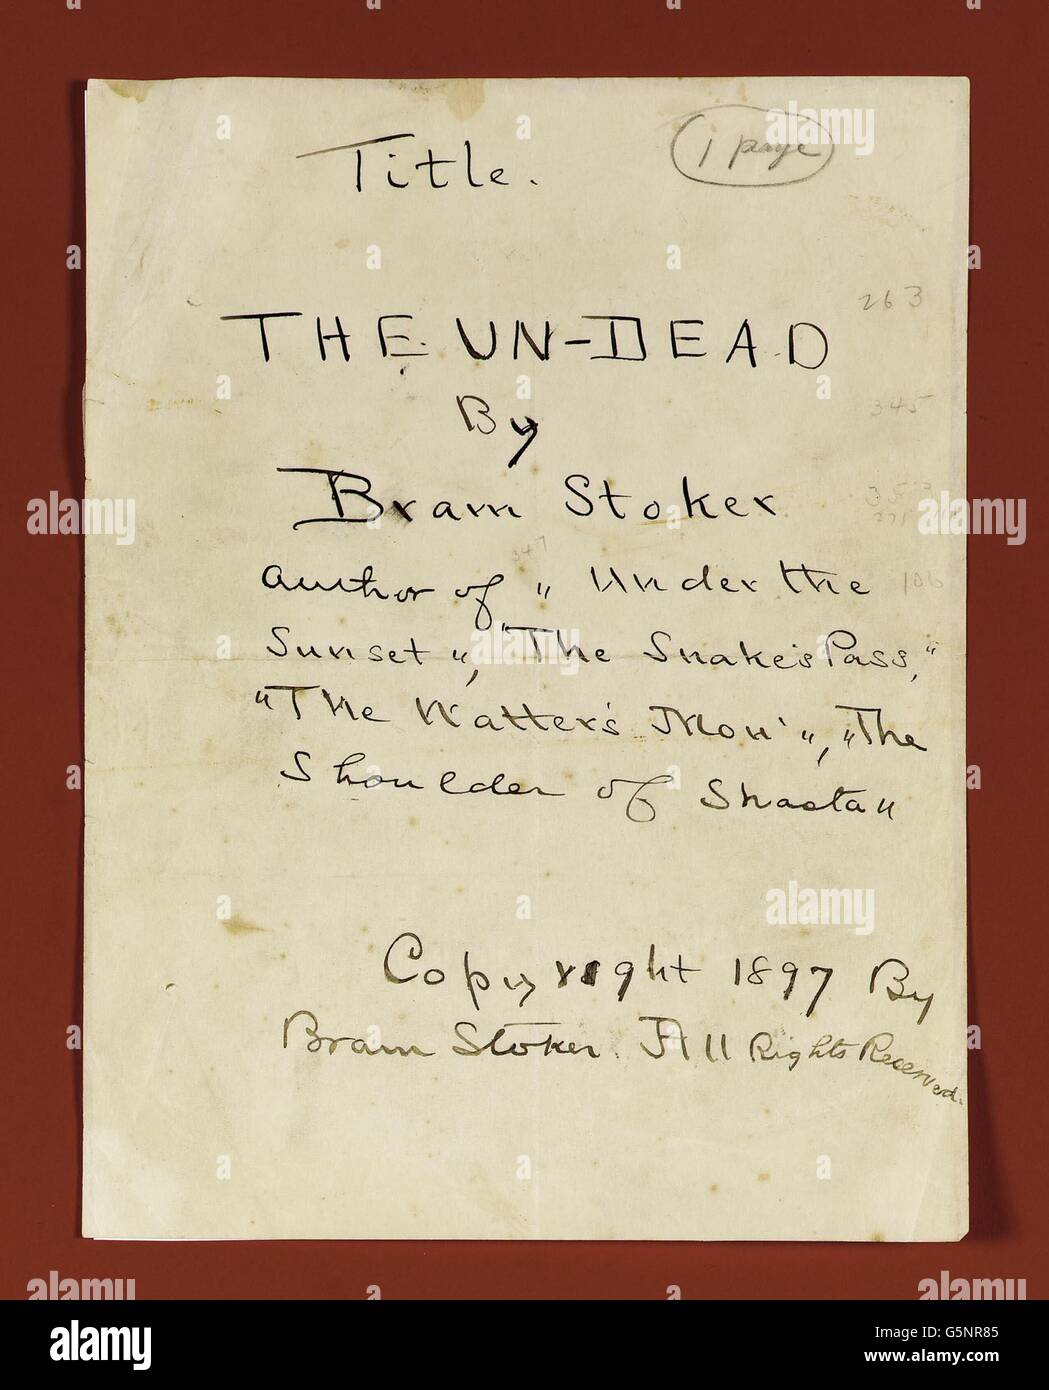 Title.
1 page
THE UN-DEAD
263
By
345
Bram Stoker
347
author of " Under the
106
Sunset", "The Snake's Pass,"
"The Watter's Mou'", "The
Shoulder of Shasta"
Copyright 1897 By
Bram Stoker. All Rights Reserved.
alamy
a
alamy
Image ID: G5NR85
www.alamy.com